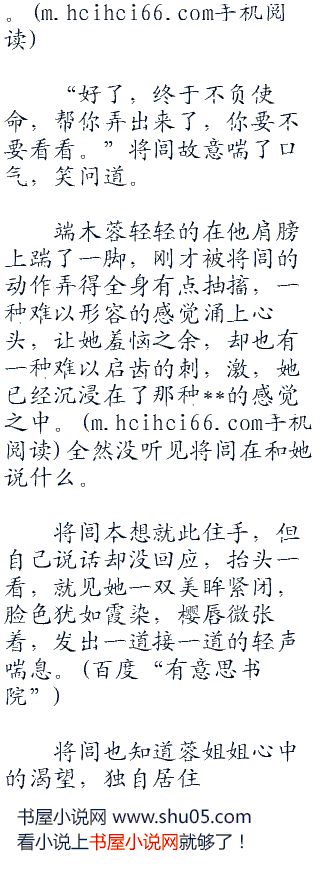 。(m.hcihci66.com手机阅
读)
“好了，终于不负使
命，帮你弄出来了，你要不
要看看。”将闾故意喘了口
气，笑问道。
端木蓉轻轻的在他肩膀
上踹了一脚，刚才被将闾的
动作弄得全身有点抽搐，一
种难以形容的感觉涌上心
头，让她羞恼之余，却也有
一种难以启齿的刺，激，她
已经沉浸在了那种**的感觉
之中。(m.hcihci66.com手机
阅读)全然没听见将闾在和她
说什么。
将闾本想就此住手，但
自己说话却没回应，抬头一
看，就见她一双美眸紧闭，
脸色犹如霞染，樱唇微张
着，发出一道接一道的轻声
喘息。(百度“有意思书
院”)
将闾也知道蓉姐姐心中
的渴望，独自居住
书屋小说网 www.shu05.com
看小说上书屋小说网就够了！